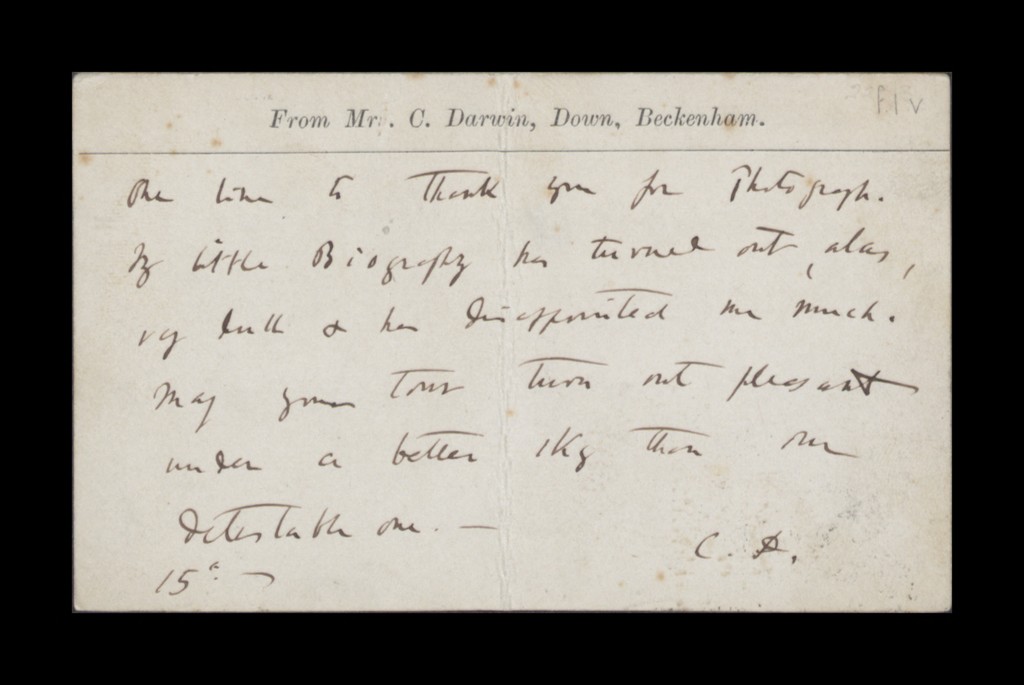 f1v
From Mr. C. Darwin, Down, Beckenham.
One line to thank you for Photograph.
My little Biography has turned out, alas,
very dull & has disappointed me much.
May your tour turn out pleasant
under a better sky than our
detestable one. —
15th —
C. D.